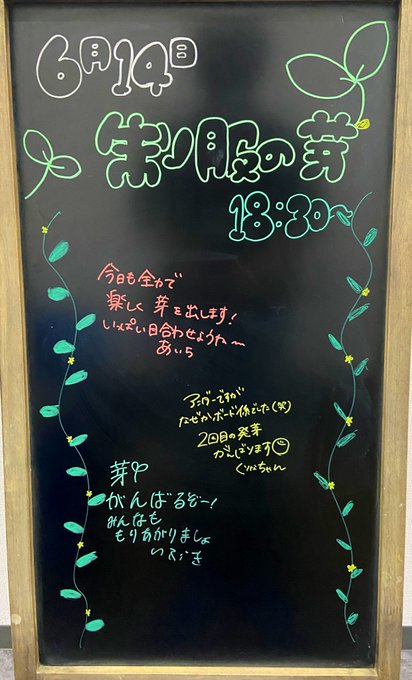 6月14日
制服の芽
18:30~
今日も全力で
楽しく 芽を出します!
いっぱい目合わせようね〜
あいら
アンダーですが
なぜかボード係でした(笑)
2回目の発芽
がんばります☺
くりかちゃん
芽中
がんばるぞー!
みんなも
もりあがりましょ
いぶき